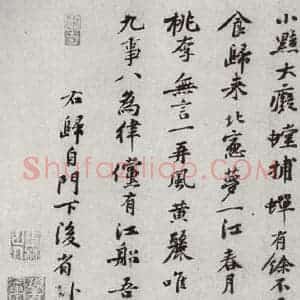 小黠大癡螳捕蟬有餘不
食歸來北窻夢一江春月
桃李無言一再風黃鸝唯
九事八為律儻有江船吾
右歸自門下後省卧
Shufaziliao.com